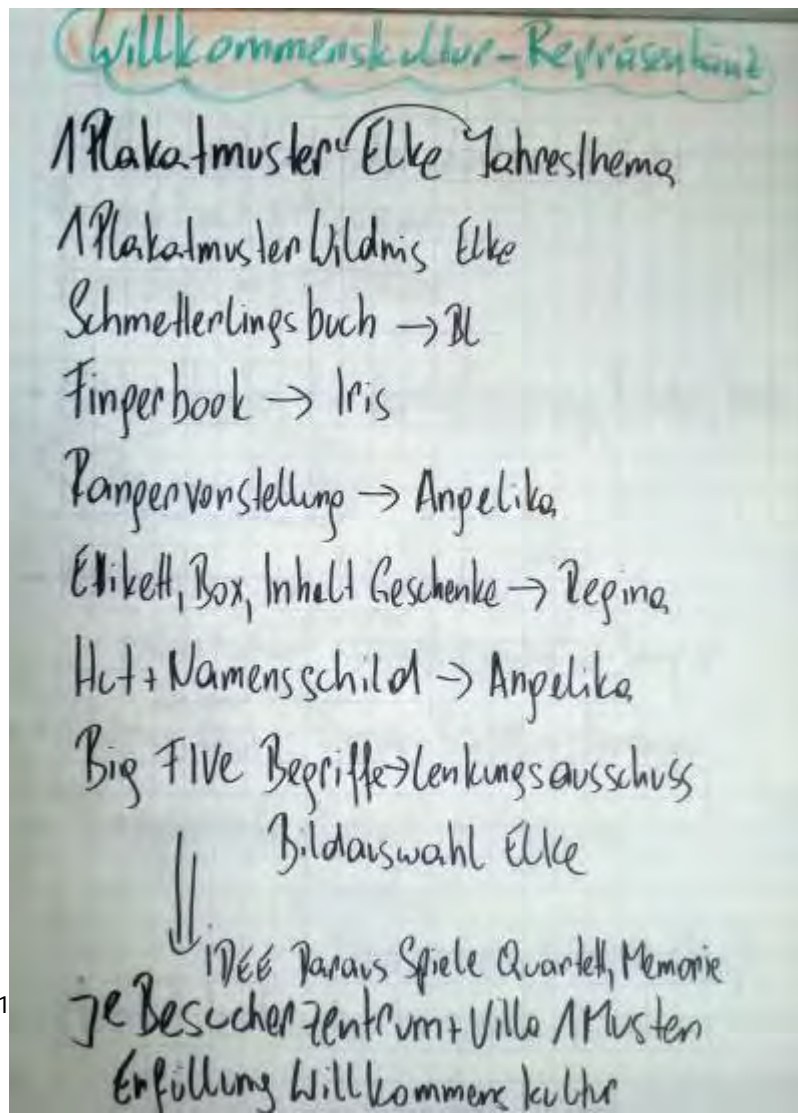 Willkommenskultur-Repräsentanz
1 Plakatmuster Elke Jahresthema
1 Plakatmuster Wildnis Elke
Schmetterlingsbuch → BL
Fingerbook → Iris
Rangervorstellung → Angelika
Etikett, Box, Inhalt Geschenke → Regina
Hut + Namensschild → Angelika
Big FIVE Begriffe → Lenkungsausschuss
Bildauswahl Elke
IDEE Daraus Spiele Quartett, Memorie
je Besucherzentrum + Villa 1 Muster
Erfüllung Willkommenskultur
1